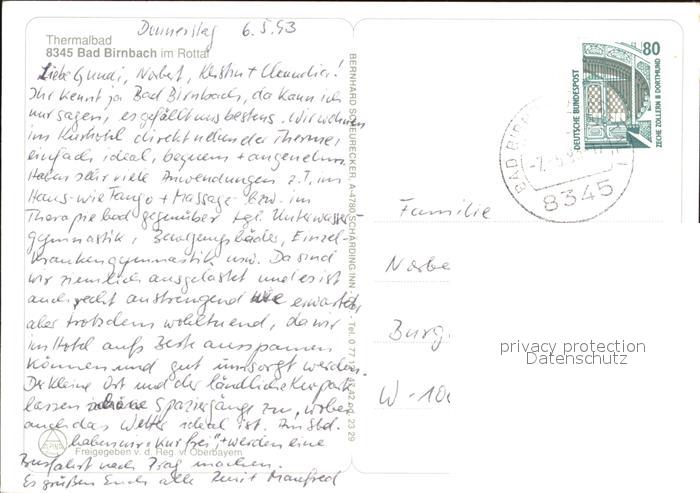 Donnerstag 6.5.93
Thermalbad
8345 Bad Birnbach im Rottal
Liebe Gundi, Norbert, Kerstin + Claudia!
Ihr kennt ja Bad Birnbach, da kann ich
nur sagen, es gefällt uns bestens. Wir wohnen
im Kurhotel direkt neben der Therme,
einfach ideal, bequem + angenehm.
Haben sehr viele Anwendungen z.T. im
Haus wie Fango + Massage bzw. im
Therapiebad gegenüber tgl. Unterwasser-
gymnastik, Bewegungsbäder, Einzel-
krankengymnastik usw. Da sind
wir ziemlich ausgelastet und es ist
auch recht anstrengend wie erwartet,
aber trotzdem wohltuend, da wir
im Hotel aufs Beste ausspannen
können und gut umsorgt werden.
Der kleine Ort und der ländliche Kurpark
lassen schöne Spaziergänge zu, wobei
auch das Wetter ideal ist.
haben wir "kurfrei" + werden eine
Freigegeben v. d. Reg. v. Oberbayern
Busfahrt nach Prag machen.
Es grüßen Euch alle Manfred
BERNHARD SCHEURECKER, A-4780 SCHÄRDING/INN
80
DEUTSCHE BUNDESPOST
ZECHE ZOLLERN II DORTMUND
BAD BIRNBACH
8345
Familie
Norbe
Burg
W-10
privacy protection
Datenschutz